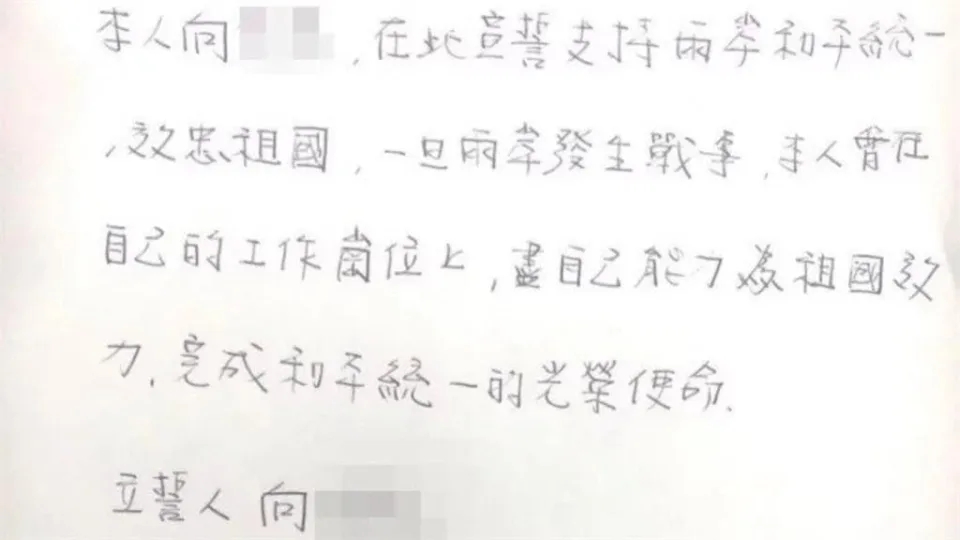 本人向，在此宣誓支持兩岸和平統一
，效忠祖國，一旦兩岸發生戰事，本人會在
自己的工作崗位上，盡自己能力為祖國效
力，完成和平統一的光榮使命.
立誓人 向